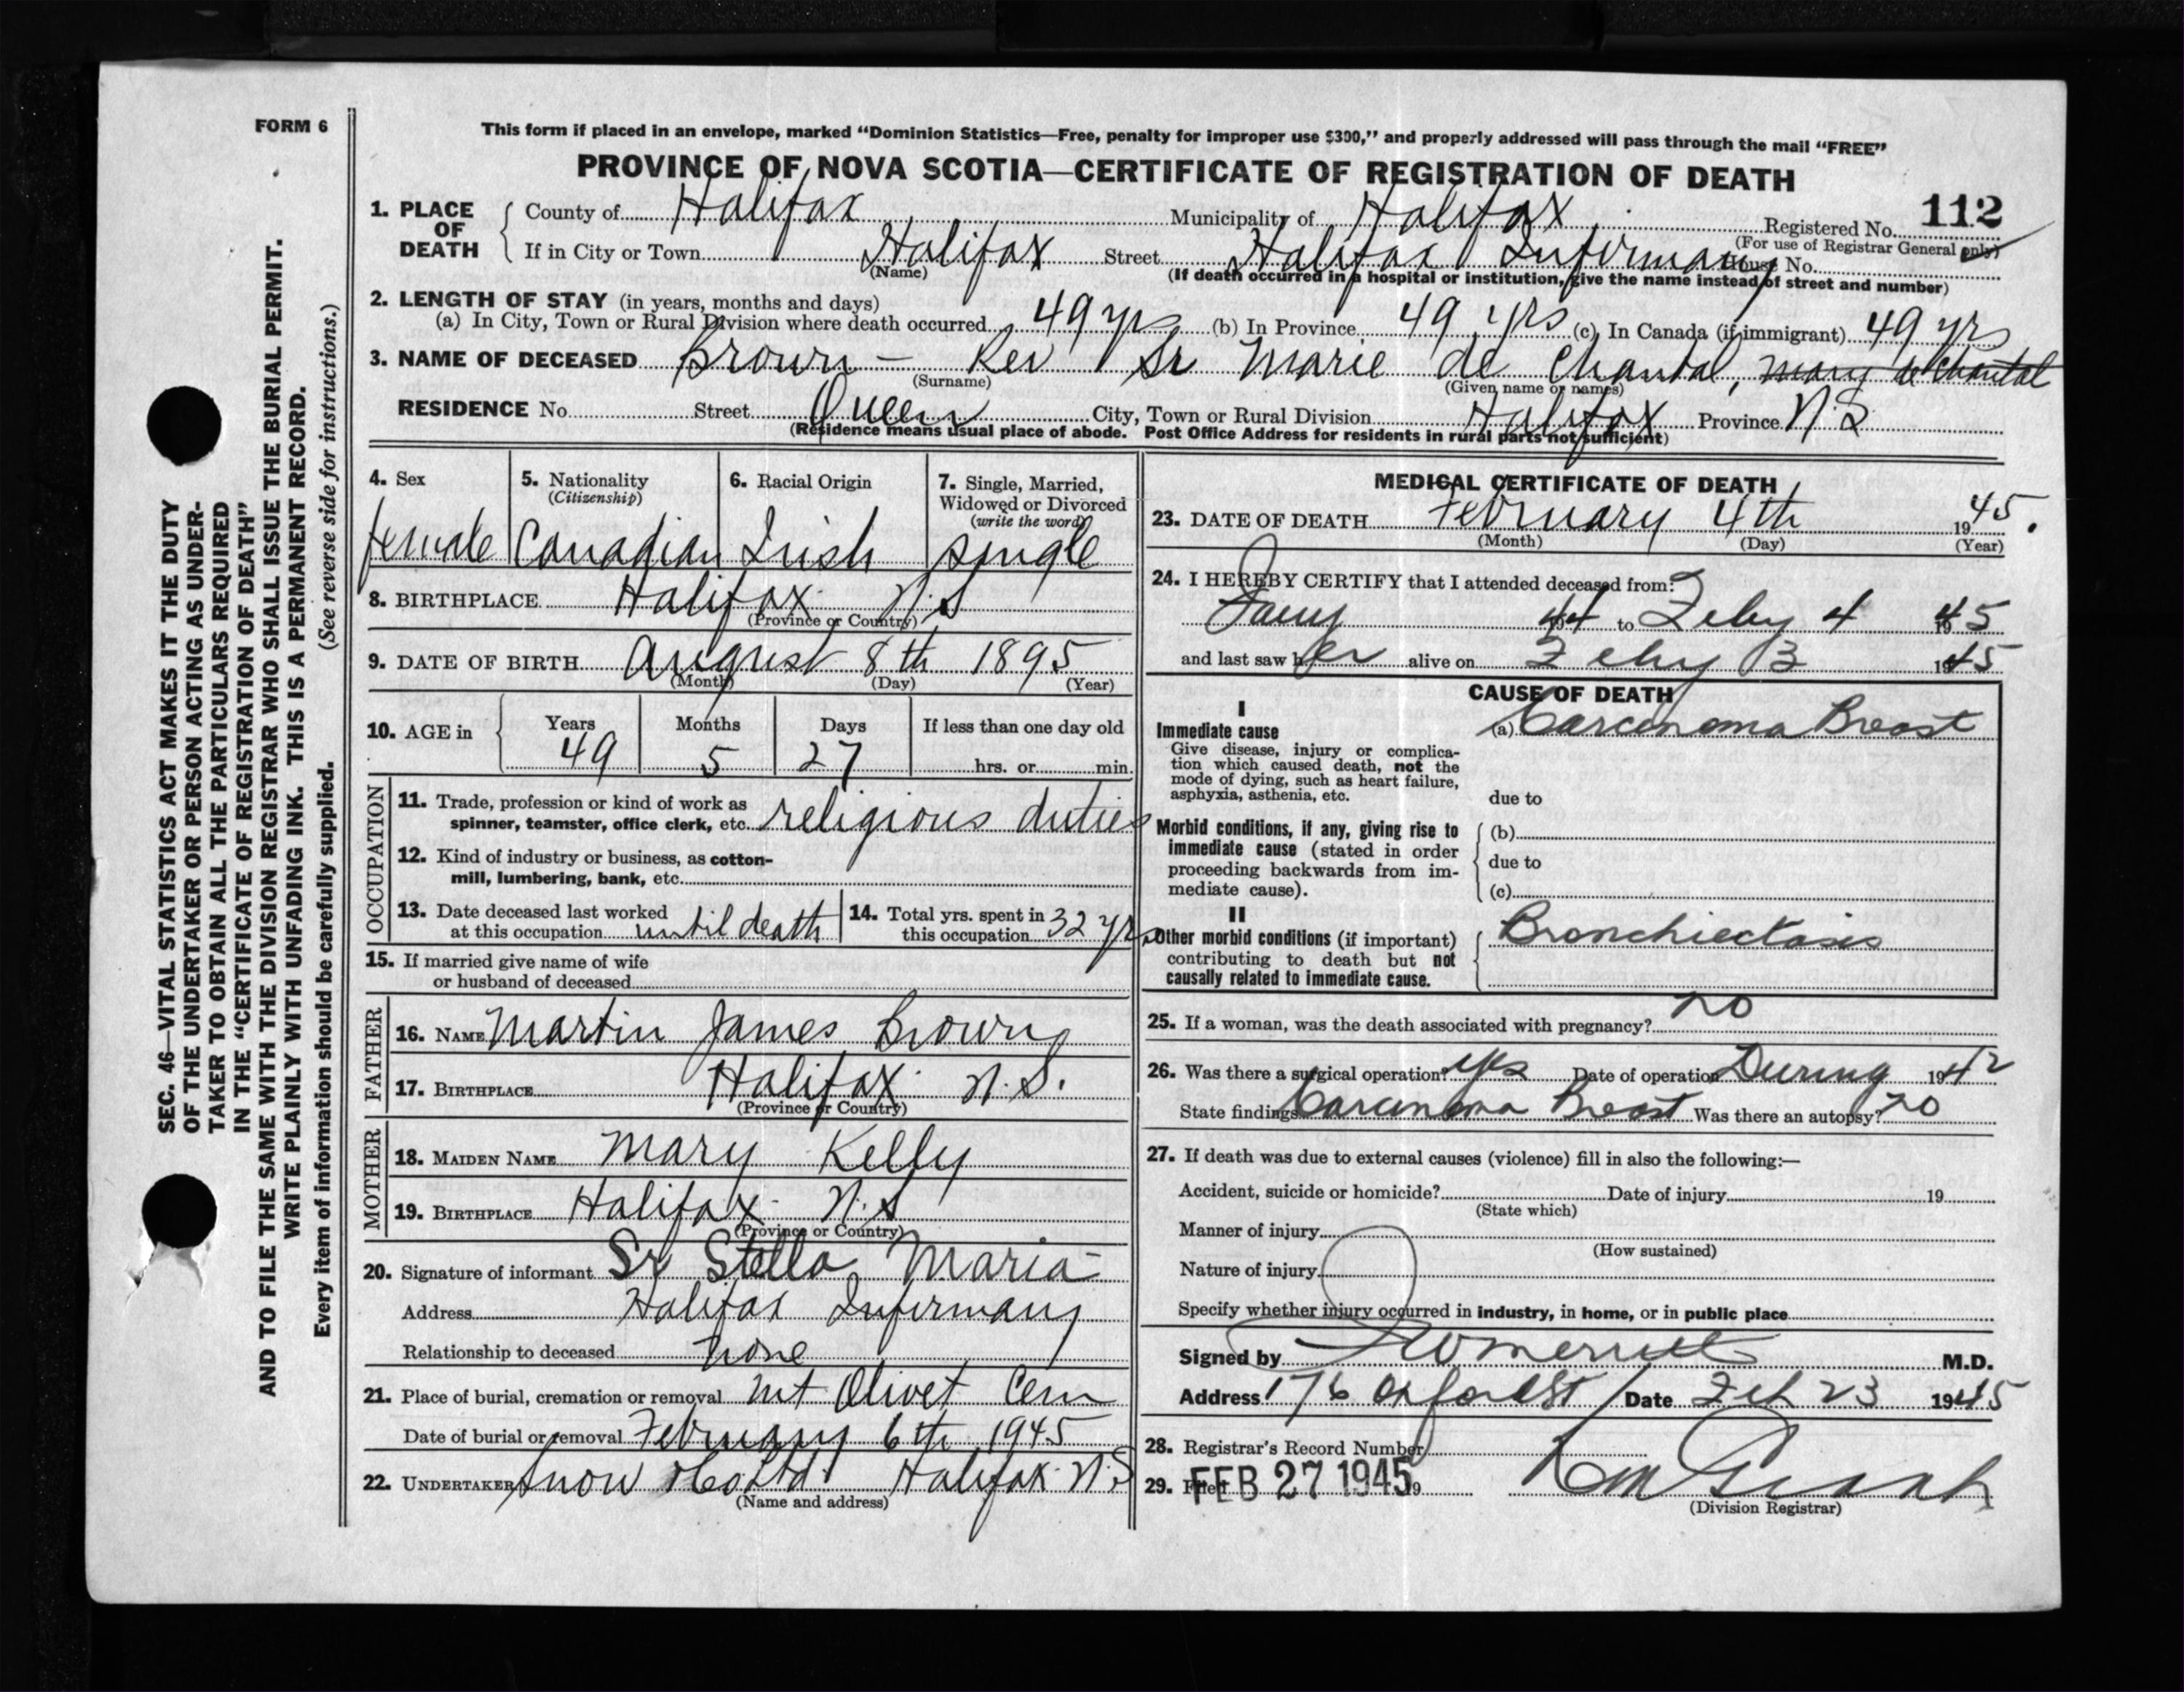 FORM 6
This form if placed in an envelope, marked "Dominion Statistics—Free, penalty for improper use $300," and properly addressed will pass through the mail "FREE"
PROVINCE OF NOVA SCOTIA—CERTIFICATE OF REGISTRATION OF DEATH
112
1. PLACE OF DEATH
County of Halifax Municipality of Halifax Registered No.
(For use of Registrar General only)
If in City or Town Halifax Street Halifax Infirmary House No.
(Name) (If death occurred in a hospital or institution, give the name instead of street and number)
2. LENGTH OF STAY (in years, months and days)
(a) In City, Town or Rural Division where death occurred 49 yrs (b) In Province 49 yrs (c) In Canada (if immigrant) 49 yrs
3. NAME OF DECEASED Brown — Rev Sr Marie de Chantal, Mary de Chantal
(Surname) (Given name or names)
RESIDENCE No. Street Queen City, Town or Rural Division Halifax Province N.S
(Residence means usual place of abode. Post Office Address for residents in rural parts not sufficient)
4. Sex
female
5. Nationality
(Citizenship)
Canadian
6. Racial Origin
Irish
7. Single, Married,
Widowed or Divorced
(write the word)
single
8. BIRTHPLACE Halifax N.S
(Province or Country)
9. DATE OF BIRTH August 8th 1895
(Month) (Day) (Year)
10. AGE in Years Months Days If less than one day old
49 5 27 hrs. or min.
OCCUPATION
11. Trade, profession or kind of work as
spinner, teamster, office clerk, etc. religious duties
12. Kind of industry or business, as cotton-
mill, lumbering, bank, etc.
13. Date deceased last worked
at this occupation until death
14. Total yrs. spent in
this occupation 32 yrs
15. If married give name of wife
or husband of deceased
FATHER
16. NAME Martin James Brown
17. BIRTHPLACE Halifax N.S.
(Province or Country)
MOTHER
18. MAIDEN NAME Mary Kelly
19. BIRTHPLACE Halifax N.S
(Province or Country)
20. Signature of informant Sr Stella Maria
Address Halifax Infirmary
Relationship to deceased none
21. Place of burial, cremation or removal Mt Olivet Cem
Date of burial or removal February 6th 1945
22. UNDERTAKER Snow & Co Ltd Halifax N.S
(Name and address)
MEDICAL CERTIFICATE OF DEATH
23. DATE OF DEATH February 4th 1945.
(Month) (Day) (Year)
24. I HEREBY CERTIFY that I attended deceased from:
Jany 1944 to Feby 4 1945
and last saw her alive on Feby 3 1945
CAUSE OF DEATH
I
Immediate cause
Give disease, injury or complica-
tion which caused death, not the
mode of dying, such as heart failure,
asphyxia, asthenia, etc.
(a) Carcinoma Breast
due to
Morbid conditions, if any, giving rise to
immediate cause (stated in order
proceeding backwards from im-
mediate cause).
(b)
due to
(c)
II
Other morbid conditions (if important)
contributing to death but not
causally related to immediate cause.
Bronchiectasis
25. If a woman, was the death associated with pregnancy? no
26. Was there a surgical operation? yes Date of operation During 1942
State findings Carcinoma Breast Was there an autopsy? no
27. If death was due to external causes (violence) fill in also the following:—
Accident, suicide or homicide? Date of injury 19
(State which)
Manner of injury
(How sustained)
Nature of injury
Specify whether injury occurred in industry, in home, or in public place
Signed by M.D.
Address 176 Oxford St Date Feb 23 1945
28. Registrar's Record Number
29. Filed FEB 27 1945 19
(Division Registrar)
SEC. 46—VITAL STATISTICS ACT MAKES IT THE DUTY
OF THE UNDERTAKER OR PERSON ACTING AS UNDER-
TAKER TO OBTAIN ALL THE PARTICULARS REQUIRED
IN THE "CERTIFICATE OF REGISTRATION OF DEATH"
AND TO FILE THE SAME WITH THE DIVISION REGISTRAR WHO SHALL ISSUE THE BURIAL PERMIT.
WRITE PLAINLY WITH UNFADING INK. THIS IS A PERMANENT RECORD.
Every item of information should be carefully supplied. (See reverse side for instructions.)